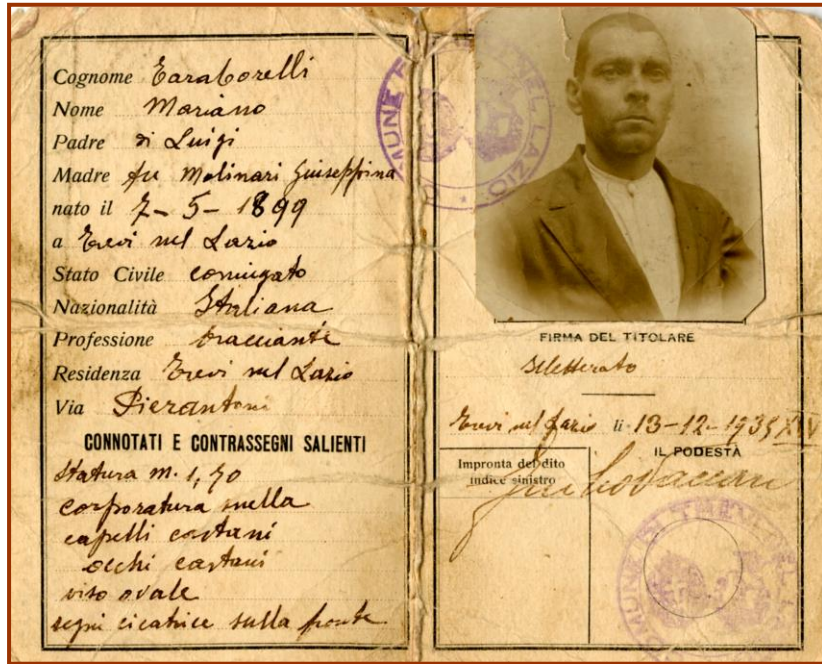 Cognome Taraborelli
Nome Mariano
Padre di Luigi
Madre fu Molinari Giuseppina
nato il 7-5-1899
a Trevi nel Lazio
Stato Civile coniugato
Nazionalità Italiana
Professione bracciante
Residenza Trevi nel Lazio
Via Pierantoni
CONNOTATI E CONTRASSEGNI SALIENTI
Statura m. 1,70
corporatura snella
capelli castani
occhi castani
viso ovale
segni cicatrice sulla fronte
COMUNE DI TREVI NEL LAZIO
FIRMA DEL TITOLARE
Illetterato
Trevi nel Lazio li 13-12-1935 XIV
IL PODESTÀ
Impronta del dito
indice sinistro
COMUNE DI TREVI NEL